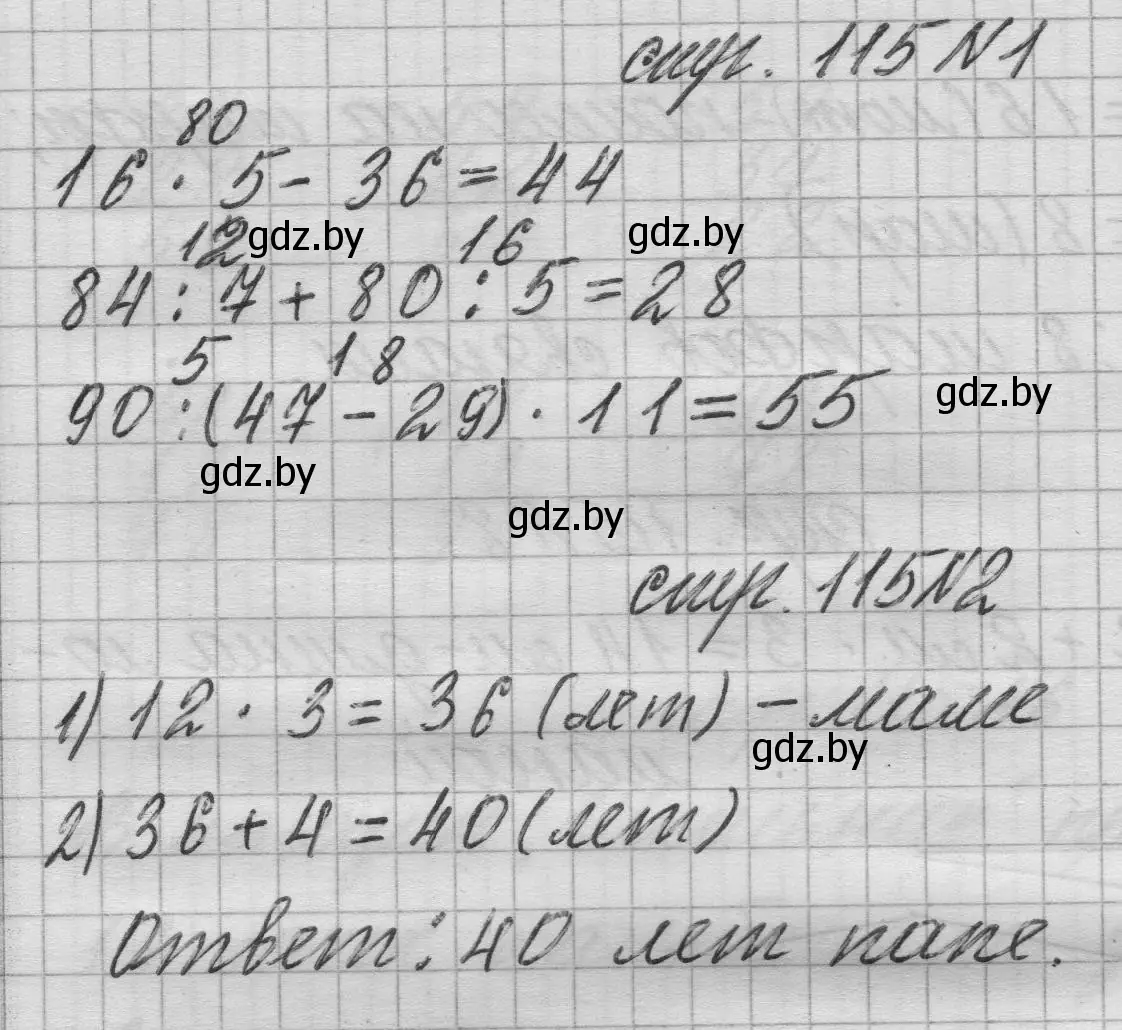 стр. 115 N1
80
16 · 5 - 36 = 44
12 gdz.by 16 gdz.by
84 : 7 + 80 : 5 = 28
5 18
90 : (47 - 29) · 11 = 55 gdz.by
gdz.by
gdz.by
стр. 115 N2
1) 12 · 3 = 36 (лет) - маме
gdz.by
2) 36 + 4 = 40 (лет)
Ответ: 40 лет папе.